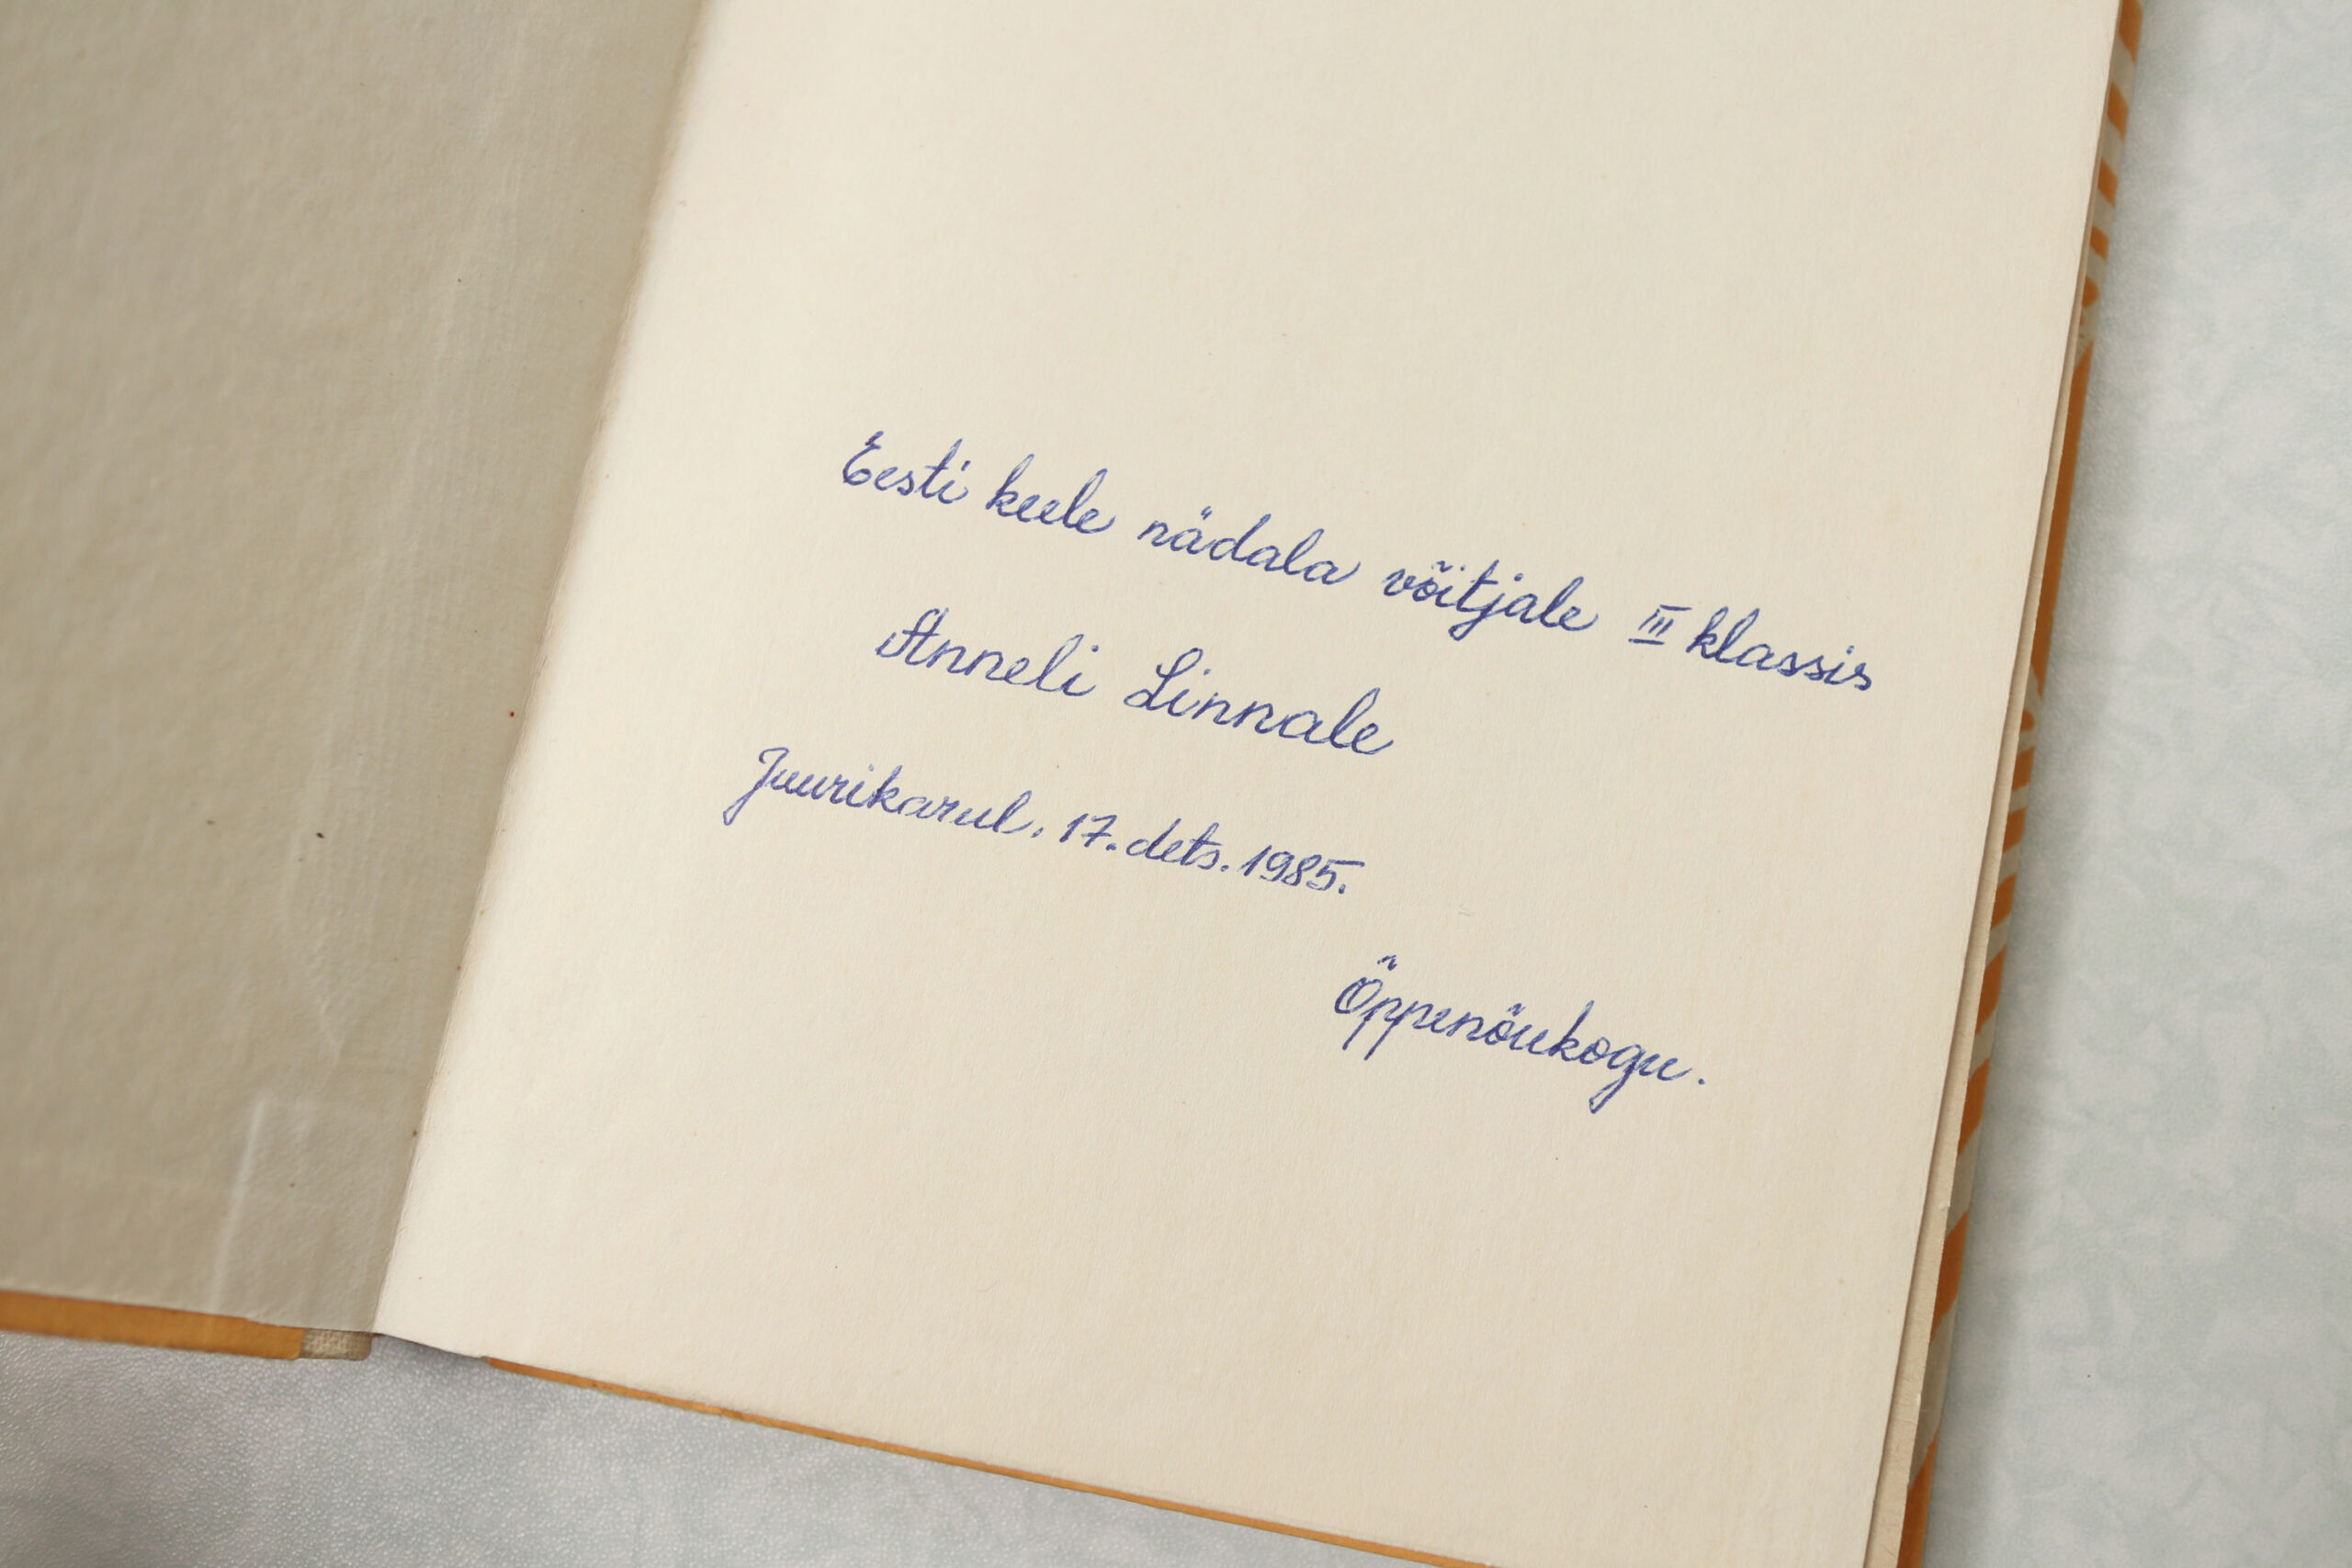 Eesti keele nädala võitjale III klassis
Anneli Linnale
Juurikarul. 17. dets. 1985.
Õppenõukogu.